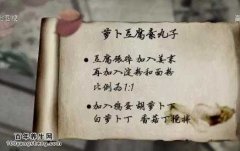 萝卜豆腐素丸子
• 豆腐碾碎 加入姜末
再加入淀粉和面粉
比例为1:1
• 加入鸡蛋 胡萝卜丁
白萝卜丁 香菇丁搅拌
百年养生网